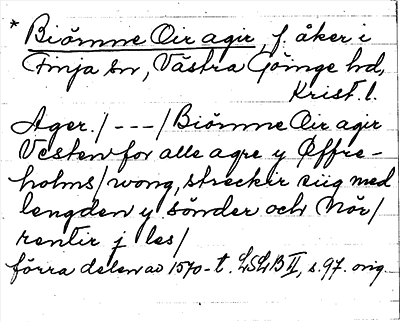 * Biömne Oir agir, f. åker i
Finja sn, Västra Göinge hd,
Krist. l.
Ager. / - - - / Biömne Oir agir
Vesten for alle agre y Øffre-
holms / wong, streckir siig med
lengden y sönder och Nör /
rentir j les /
förra delen av 1570-t. LSLB II, s. 97. orig.